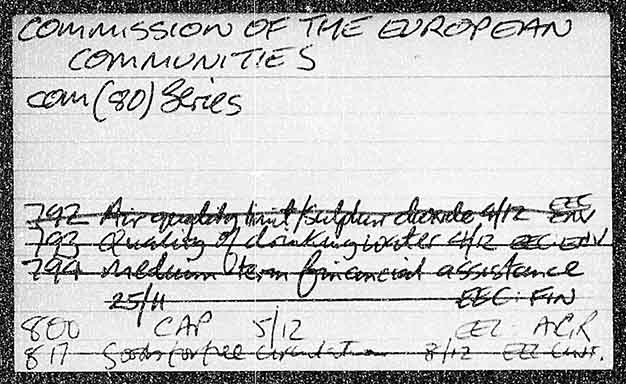 COMMISSION OF THE EUROPEAN
COMMUNITIES
COM (80) Series
792 Air quality limit/sulphur dioxide 4/12 EEC ENV
793 Quality of drinking water 4/12 EEC: ENV
794 Medium term financial assistance
25/11 EEC: FIN
800 CAP 5/12 EEC: AGR
817 Goods for free circulation 8/12 EEC